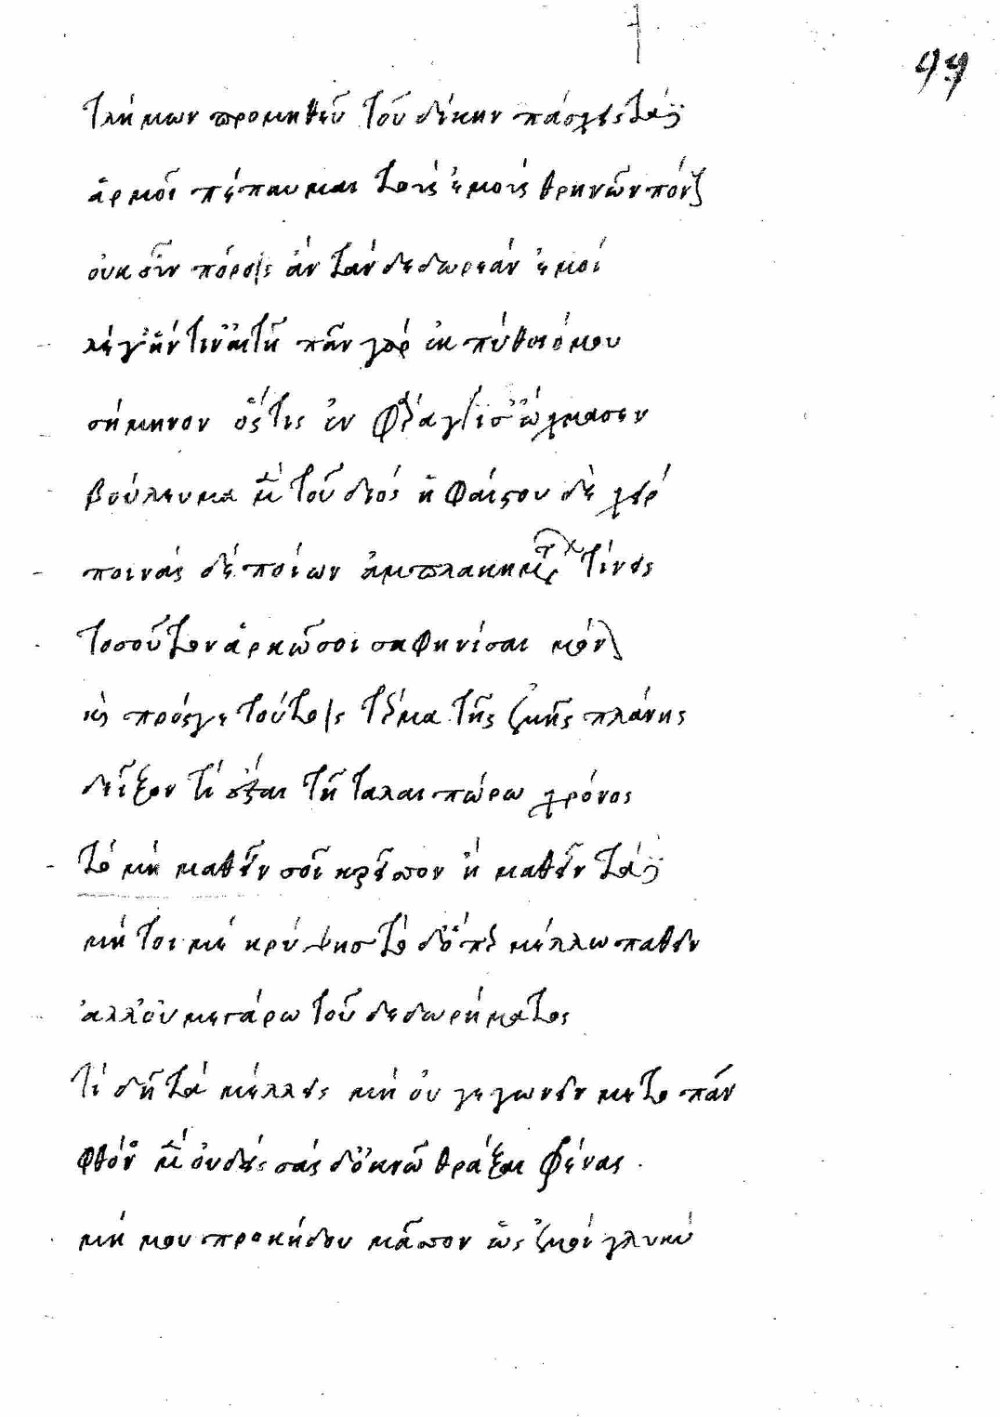 99
τλήμων προμηθεῦ τοῦ δίκην πάσχεις τάδε
ἁρμοῖ πέπαυμαι τοὺς ἐμοὺς θρηνῶν πόνους
οὐκ οὖν πόροις ἂν τάνδε δωρεὰν ἐμοί
λέγ' ἥντιν' αἰτῆ πᾶν γὰρ ἐκπύθοιό μου
σήμηνον ὅστις ἐν φάραγγι σ' ὤχμασεν
βούλευμα μὲν τοῦ διός ἡφαίστου δὲ χείρ
ποινὰς δὲ ποίων ἀμπλακημάτων τίνεις
τοσοῦτον ἀρκῶ σοι σαφηνίσαι μόνον
καὶ πρός γε τούτοις τέρμα τῆς ἐμῆς πλάνης
δεῖξον τί ἔσται τῆ ταλαιπώρω χρόνος
τὸ μὴ μαθεῖν σοι κρεῖσσον ἢ μαθεῖν τάδε
μή τοι με κρύψης τὸ δ' ὅπερ μέλλω παθεῖν
ἀλλ' οὐ μεγαίρω τοῦδε δωρήματος
τί δῆτα μέλλεις μὴ οὐ γεγωνεῖν με τὸ πᾶν
φθόνος μὲν οὐδείς σὰς δ' ὀκνῶ θράξαι φρένας.
μή μου προκήδου μᾶσσον ὡς ἐμοὶ γλυκύ